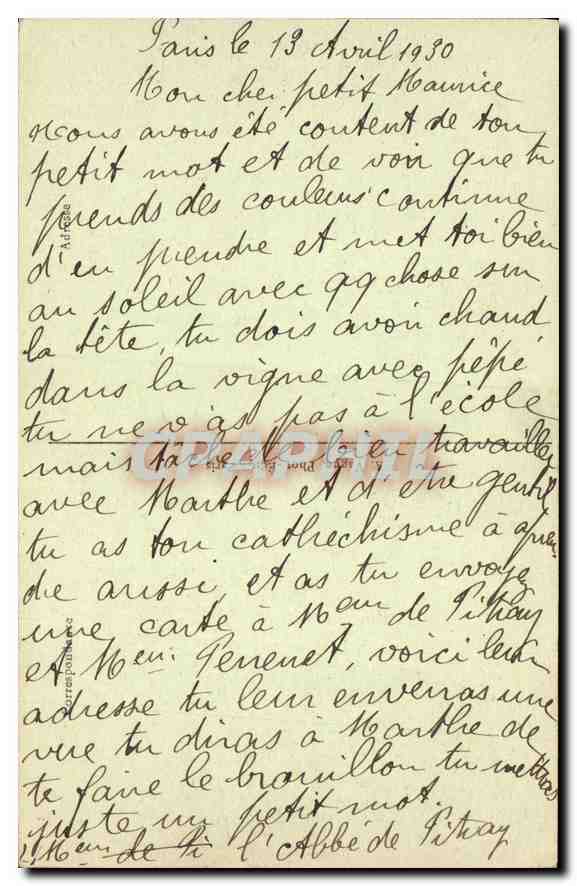 Paris le 13 Avril 1930
Mon cher petit Maurice
Nous avons été content de ton
petit mot et de voir que tu
prends des couleurs continue
d'en prendre et met toi bien
au soleil avec qq chose sur
la tête, tu dois avoir chaud
dans la vigne avec pépé
tu ne vas pas à l'école
mais tâche de bien travailler
avec Marthe et d'être gentil
tu as ton cathéchisme à apren-
dre aussi, et as tu envoyé
une carte à Meur de Pitray
et Meur. Perenet, voici leur
adresse tu leur enverras une
vue tu diras à Marthe de
te faire le brouillon tu mettras
juste un petit mot.
Meur de Pi l'Abbé de Pitray
Adresse
Correspondance
CPAPHIL